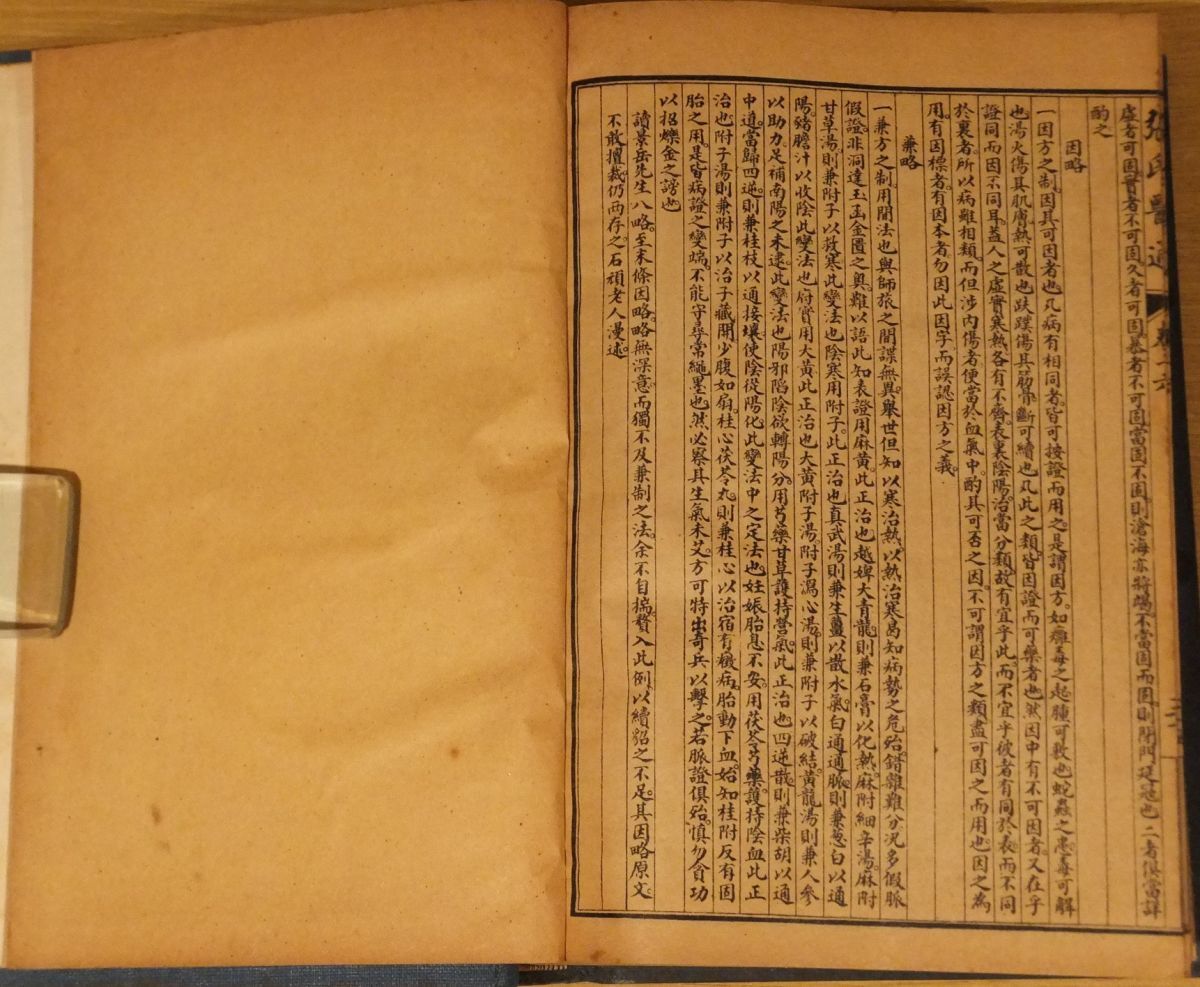 張氏醫通
卷十六
虛者可固實者不可固久者可固暴者不可固當固不固則滄海亦將竭不當固而固則閉門延寇也二者俱當詳
酌之
因略
一因方之制因其可因者也凡病有相同者皆可按證而用之是謂因方如癰毒之起腫可敷也蛇蟲之患毒可解
也湯火傷其肌膚熱可散也跌蹼傷其筋骨斷可續也凡此之類皆因證而可藥者也然因中有不可因者又在乎
證同而因不同耳蓋人之虛實寒熱各有不齊表裏陰陽治當分類故有宜乎此而不宜乎彼者有同於表而不同
於裏者所以病雖相類而但涉內傷者便當於血氣中酌其可否之因不可謂因方之類盡可因之而用也因之為
用有因標者有因本者勿因此因字而誤認因方之義
兼略
一兼方之制用間法也與師旅之間諜無異舉世但知以寒治熱以熱治寒曷知病勢之危殆錯雜難分況多假脈
假證非洞達玉函金匱之奧難以語此如表證用麻黃此正治也越婢大青龍則兼石膏以化熱麻附細辛湯麻附
甘草湯則兼附子以救寒此變法也陰寒用附子此正治也真武湯則兼生薑以散水氣白通通脈則兼葱白以通
陽豬膽汁以收陰此變法也府實用大黃此正治也大黃附子湯附子瀉心湯則兼附子以破結黃龍湯則兼人參
以助力足補南陽之未逮此變法也陽邪陷陰欲轉陽分用芍藥甘草護持營氣此正治也四逆散則兼柴胡以通
中道當歸四逆則兼桂枝以通接壤使陰從陽化此變法中之定法也妊娠胎息不安用茯苓芍藥護持陰血此正
治也附子湯則兼附子以治子藏開少腹如扇桂心茯苓丸則兼桂心以治宿有癥病胎動下血始知桂附反有固
胎之用是皆病證之變端不能守尋常繩墨也然必察其生氣未艾方可特出奇兵以擊之若脈證俱殆慎勿貪功
以招爍金之謗也
讀景岳先生八略至末條因略略無深意而獨不及兼制之法余不自揣贅入此例以續貂之不足其因略原文
不敢擅裁仍兩存之石頑老人漫述